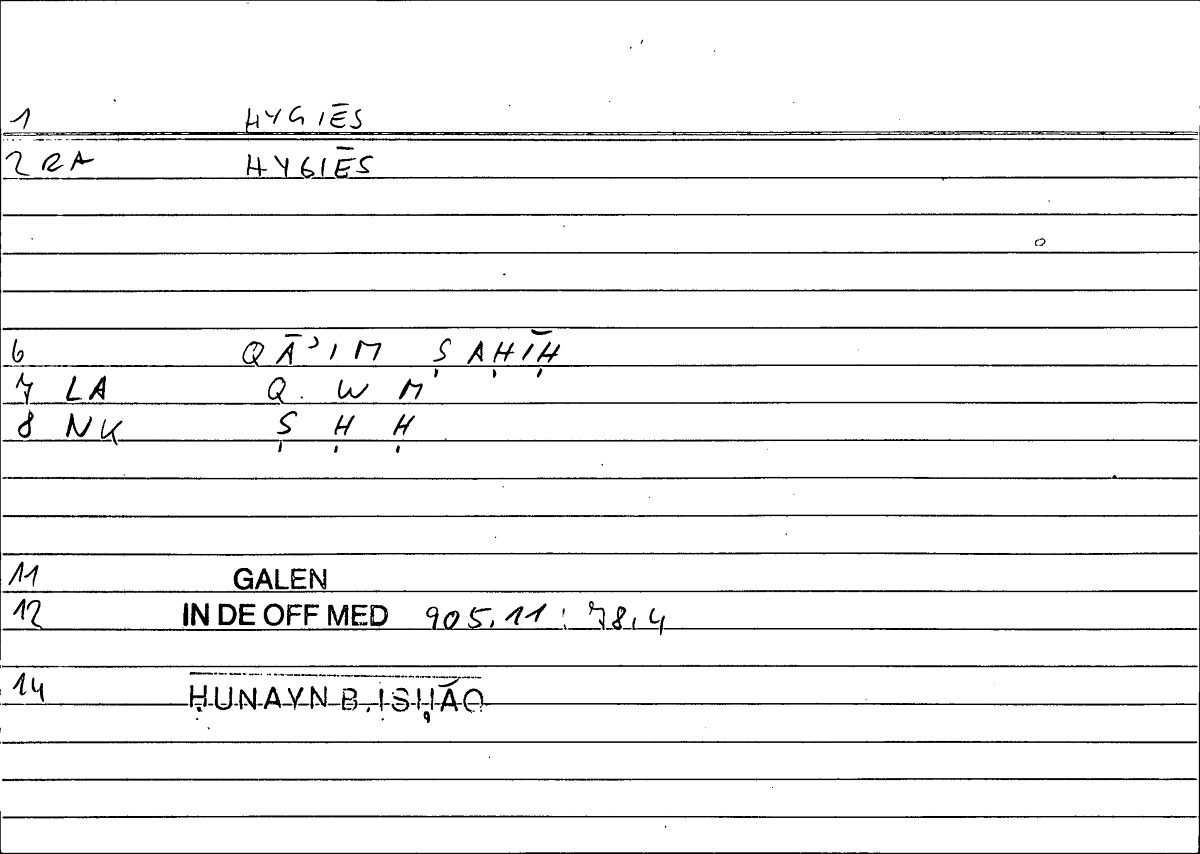 1 HYGIĒS
2 RA HYGIĒS
6 QĀʾIM ṢAḤĪḤ
7 LA Q. W M
8 NK Ṣ Ḥ Ḥ
11 GALEN
12 IN DE OFF MED 905,11 : 78,4
14 ḤUNAYN B. ISḤĀQ